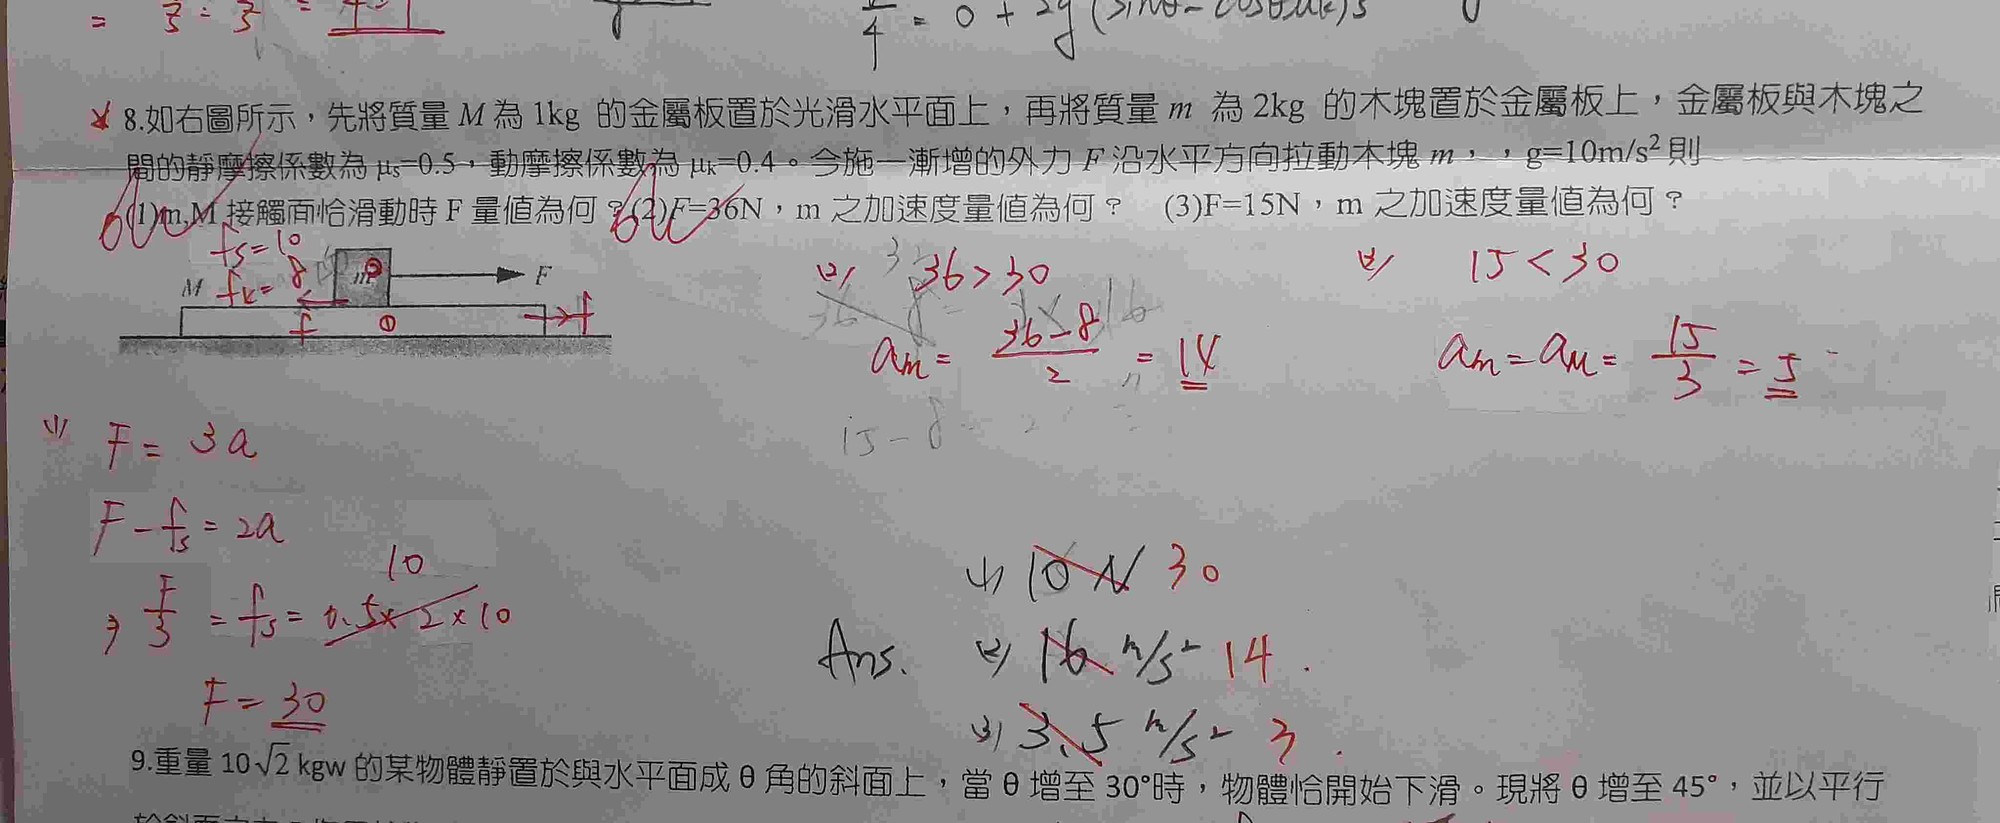 8.如右圖所示，先將質量 M 為 1kg 的金屬板置於光滑水平面上，再將質量 m 為 2kg 的木塊置於金屬板上，金屬板與木塊之
間的靜摩擦係數為 μs=0.5，動摩擦係數為 μk=0.4。今施一漸增的外力 F 沿水平方向拉動木塊 m，，g=10m/s² 則
(1)m,M 接觸面恰滑動時 F 量值為何？(2)F=36N，m 之加速度量值為何？ (3)F=15N，m 之加速度量值為何？
fs=10
fk=8
M
m
F
f
f
(1) F=3a
F-fs=2a
⇒ F/3 = fs = 0.5×2×10
10
F=30
(2) 36>30
am = (36-8)/2 = 14
15<30
am=aM= 15/3 = 5
15-8
Ans.
(1) 10N 30
(2) 16 m/s² 14.
(3) 3.5 m/s² 3.
9.重量 10√2 kgw 的某物體靜置於與水平面成 θ 角的斜面上，當 θ 增至 30°時，物體恰開始下滑。現將 θ 增至 45°，並以平行